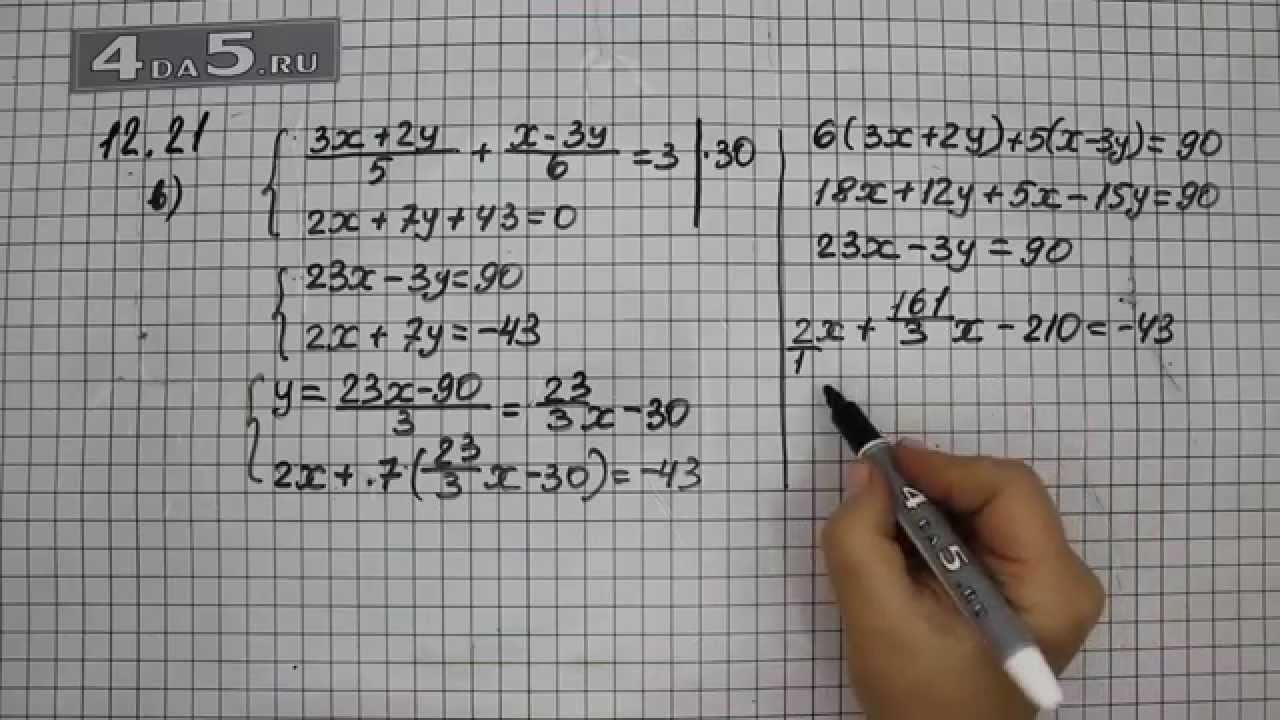 4DA5.RU
12.21
в)
(3x+2y)/5 + (x-3y)/6 = 3 | ·30
2x+7y+43=0
23x-3y=90
2x+7y=-43
y = (23x-90)/3 = 23/3 x - 30
2x + .7·(23/3 x - 30) = -43
6(3x+2y)+5(x-3y)=90
18x+12y+5x-15y=90
23x-3y=90
2/1 x + 161/3 x - 210 = -43
4DA5.RU